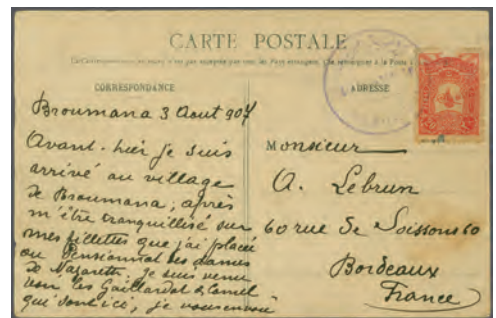 CARTE POSTALE
CORRESPONDANCE
ADRESSE
Broumana 3 Aout 907
Avant-hier je suis
arrivé au village
de Broumana, après
m'être tranquillisé sur
mes fillettes que j'ai placé
au Pensionnat des dames
de Nazareth. Je suis venu
voir les Gaillardot & Camel
qui sont ici, je vous envoie
Monsieur
A. Lebrun
60 rue de Soissons 60
Bordeaux
France